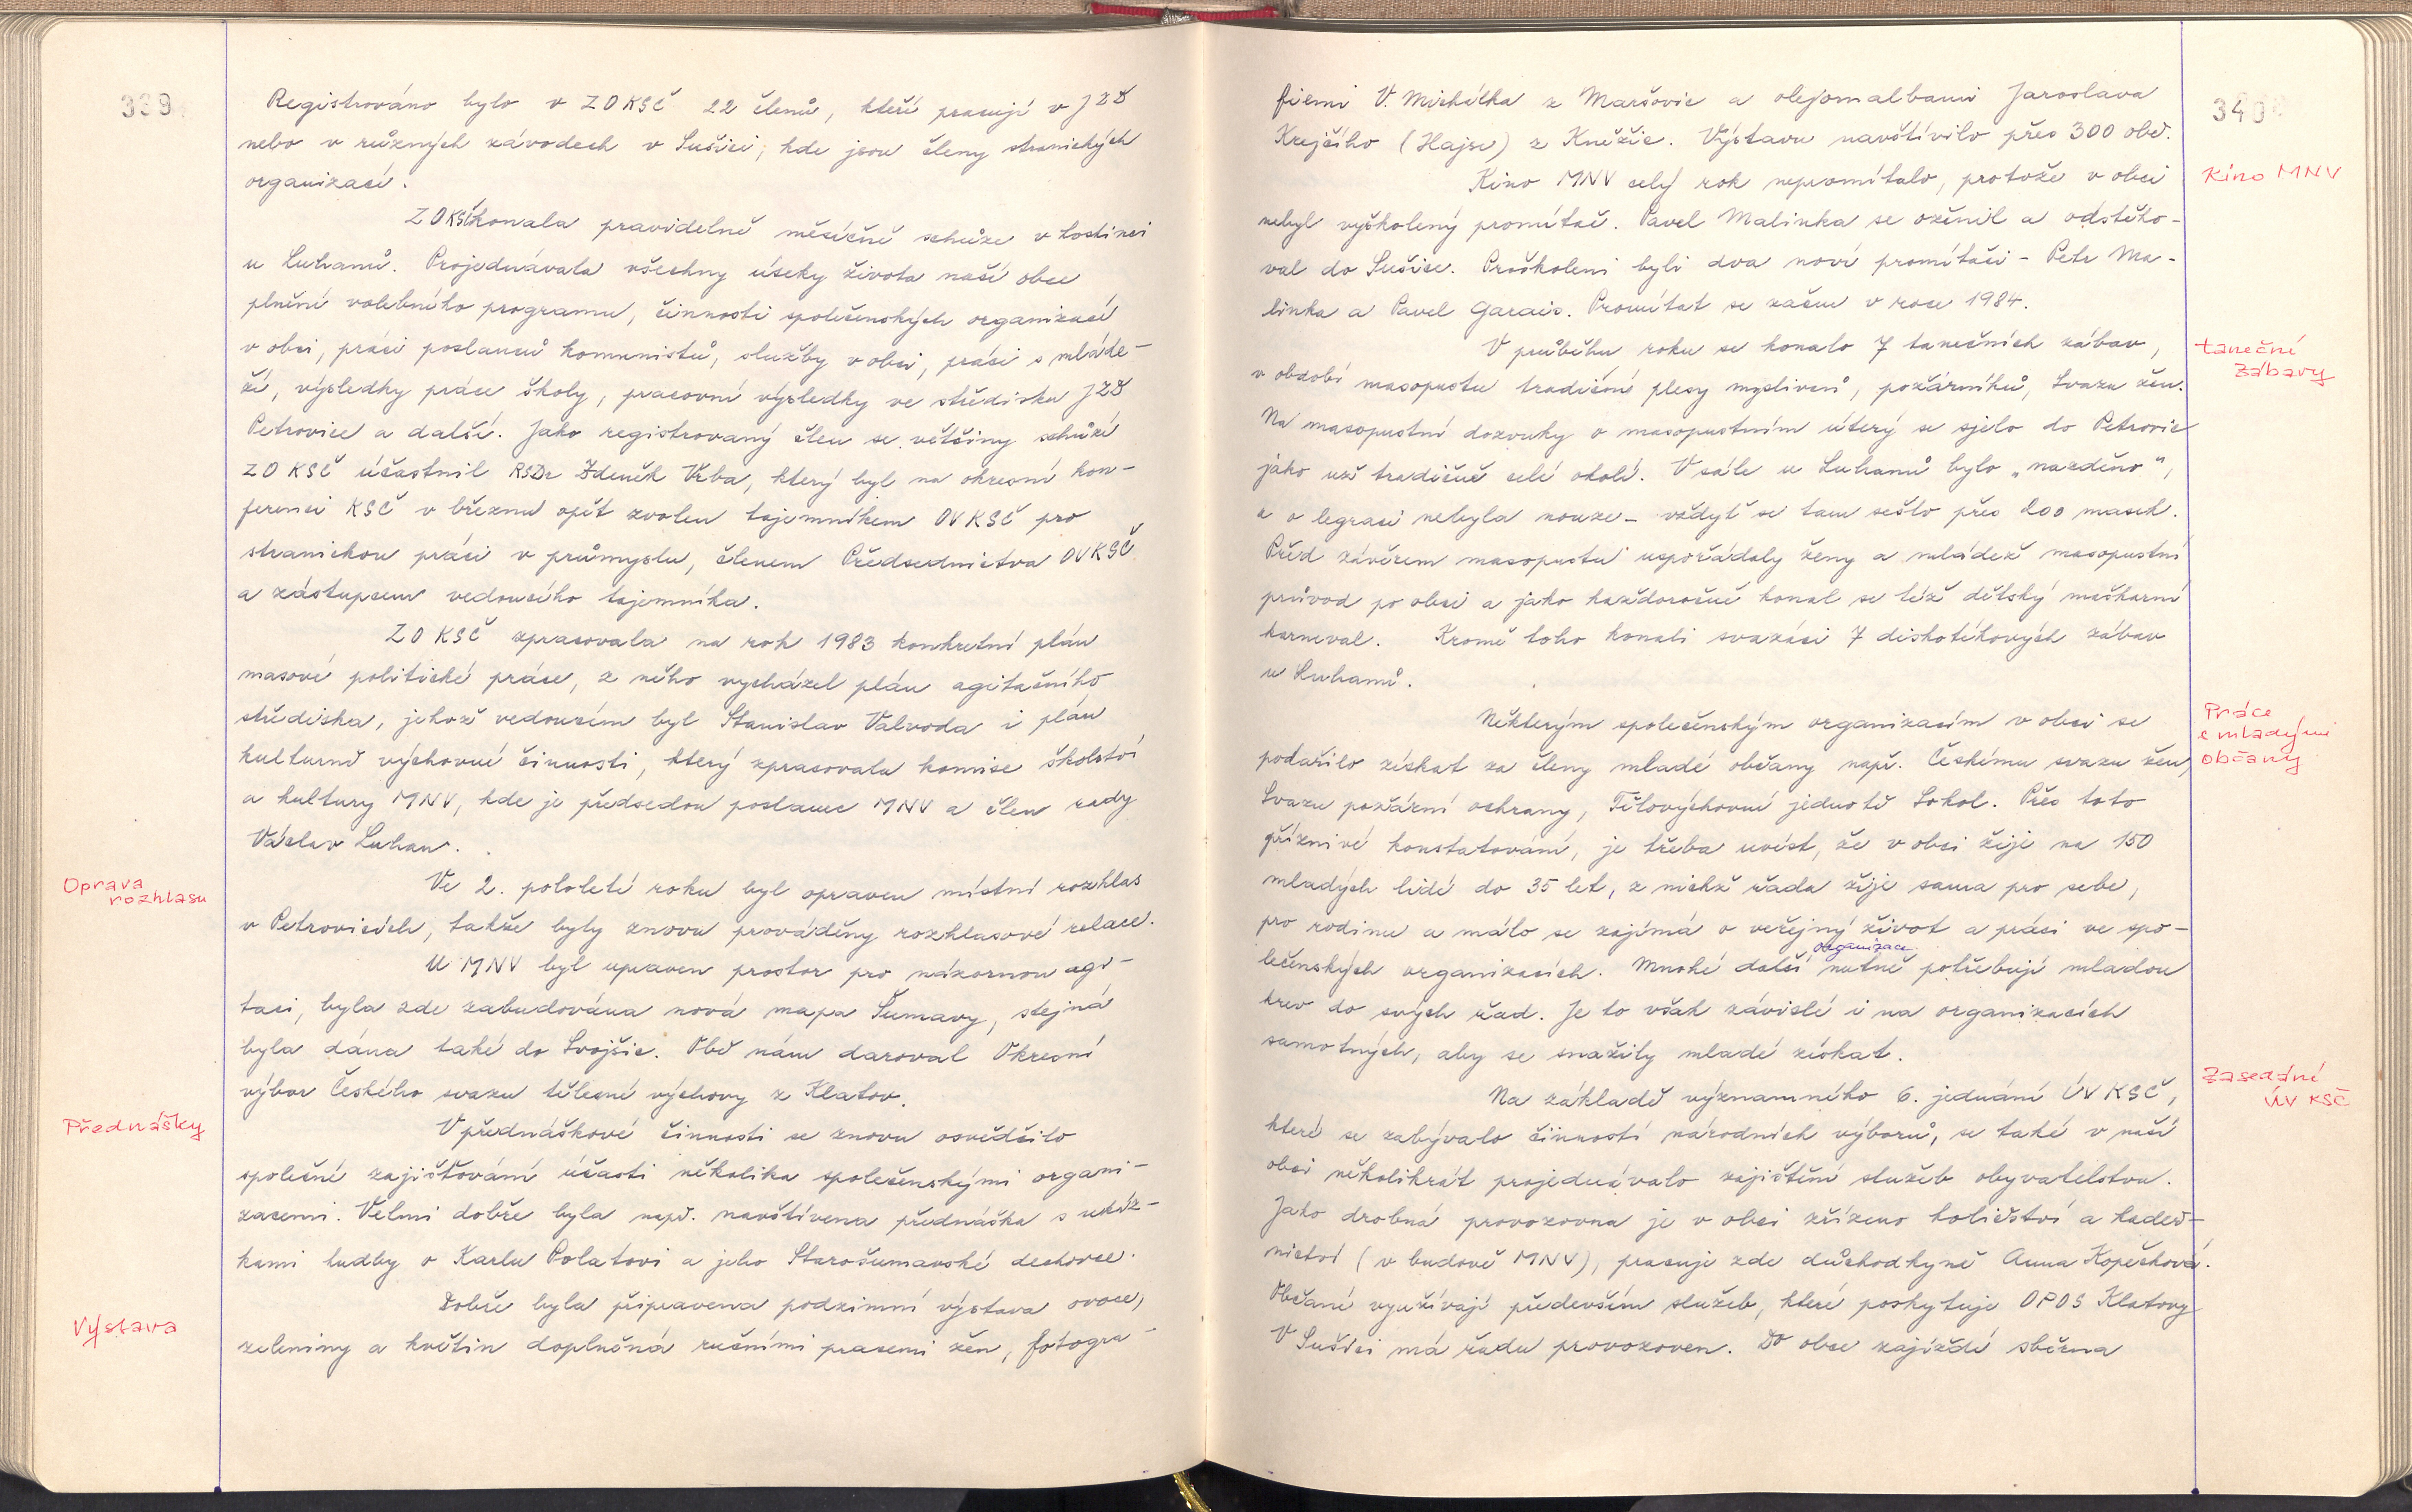 339
Registrováno bylo v ZO KSČ 22 členů, kteří pracují v JZD
nebo v různých závodech v Sušici, kde jsou členy stranických
organizací.
ZO KSČ konala pravidelně měsíčně schůze v hostinci
u Luhanů. Projednávala všechny úseky života naší obce
plnění volebního programu, činnosti společenských organizací
v obci, práci poslanců komunistů, služby v obci, práci s mláde-
ží, výsledky práce školy, pracovní výsledky ve středisku JZD
Petrovice a další. Jako registrovaný člen se většiny schůzí
ZO KSČ účastnil RSDr Zdeněk Vrba, který byl na okresní kon-
ferenci KSČ v březnu opět zvolen tajemníkem OV KSČ pro
stranickou práci v průmyslu, členem Předsednictva OV KSČ
a zástupcem vedoucího tajemníka.
ZO KSČ zpracovala na rok 1983 konkretní plán
masově politické práce, z něho vycházel plán agitačního
střediska, jehož vedoucím byl Stanislav Valvoda i plán
kulturně výchovné činnosti, který zpracovala komise školství
a kultury MNV, kde je předsedou poslanec MNV a člen rady
Václav Luhan.
Oprava
rozhlasu
Ve 2. pololetí roku byl opraven místní rozhlas
v Petrovicích, takže byly znovu prováděny rozhlasové relace.
U MNV byl upraven prostor pro názornou agi-
taci, byla zde zabudována nová mapa Šumavy, stejná
byla dána také do Svojšic. Obě nám daroval Okresní
výbor Českého svazu tělesné výchovy z Klatov.
Přednášky
V přednáškové činnosti se znovu osvědčilo
společné zajišťování účasti několika společenskými organi-
zacemi. Velmi dobře byla např. navštívena přednáška s ukáz-
kami hudby o Karlu Polatovi a jeho Starošumavské dechovce.
Výstava
Dobře byla připravena podzimní výstava ovoce,
zeleniny a květin doplněná ručními pracemi žen, fotogra-
340
fiemi V. Michálka z Maršovic a olejomalbami Jaroslava
Krejčího (Hajse) z Kněžic. Výstavu navštívilo přes 300 obč.
Kino MNV
Kino MNV celý rok nepromítalo, protože v obci
nebyl vyškolený promítač. Pavel Malinka se oženil a odstěho-
val do Sušice. Proškoleni byli dva noví promítači - Petr Ma-
linka a Pavel Garais. Promítat se začne v roce 1984.
taneční
zábavy
V průběhu roku se konalo 7 tanečních zábav,
v období masopustu tradičné plesy myslivců, požárníků, Svazu žen.
Na masopustní dozvuky o masopustním úterý se sjelo do Petrovic
jako už tradičně celé okolí. V sále u Luhanů bylo „nazděno",
a o legraci nebyla nouze - vždyť se tam sešlo přes 200 masek.
Před závěrem masopustu uspořádaly ženy a mládež masopustní
průvod po obci a jako každoročně konal se též dětský maškarní
karneval. Kromě toho konali svazáci 7 diskotékových zábav
u Luhanů.
Práce
s mladými
občany
Některým společenským organizacím v obci se
podařilo získat za členy mladé občany např. Českému svazu žen,
Svazu požární ochrany, Tělovýchovné jednotě Sokol. Přes toto
příznivé konstatování, je třeba uvést, že v obci žije na 150
mladých lidí do 35 let, z nichž řada žije sama pro sebe,
pro rodinu a málo se zajímá o veřejný život a práci ve spo-
organizace
lečenských organizacích. Mnohé další nutně potřebují mladou
krev do svých řad. Je to však závislé i na organizacích
samotných, aby se snažily mladé získat.
Zasedání
ÚV KSČ
Na základě významného 6. jednání ÚV KSČ,
které se zabývalo činností národních výborů, se také v naší
obci několikrát projednávalo zajištění služeb obyvatelstvu.
Jako drobná provozovna je v obci zřízeno holičství a kadeř-
nictví (v budově MNV), pracuje zde důchodkyně Anna Kopečková.
Občané využívají především služeb, které poskytuje OPOS Klatovy
V Sušici má řadu provozoven. Do obce zajíždí sběrna